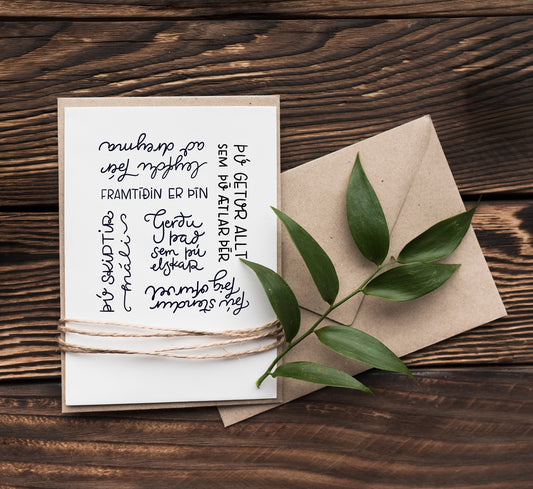 leyfðu þér
að dreyma
ÞÚ GETUR ALLT
SEM ÞÚ ÆTLAR ÞÉR
FRAMTÍÐIN ER ÞÍN
ÞÚ SKIPTIR
máli
Gerðu
það
sem þú
elskar
þú stendur
þig ofurvel